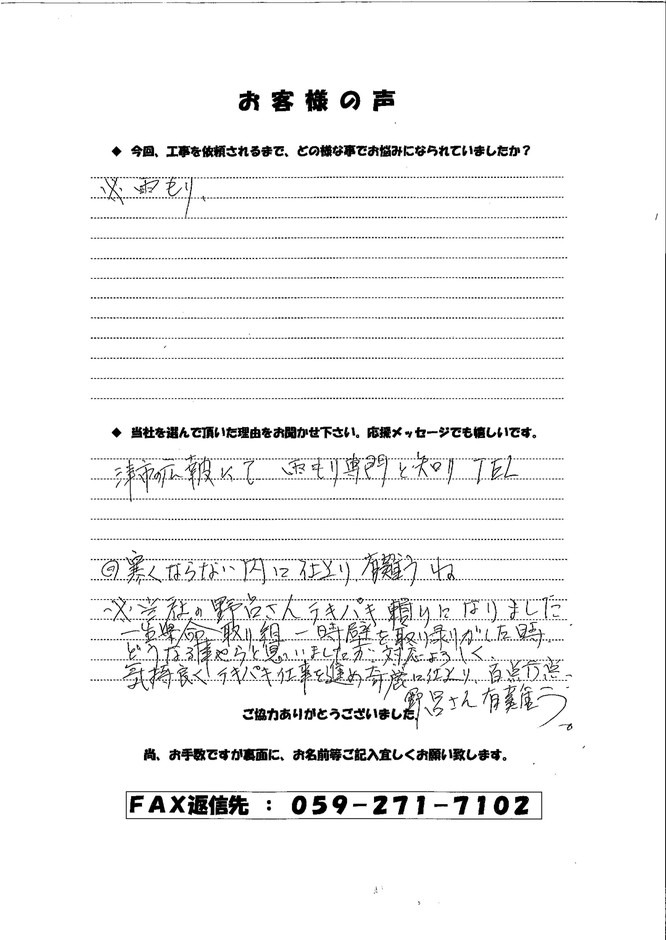 お客様の声
◆ 今回、工事を依頼されるまで、どの様な事でお悩みになられていましたか？
※ 雨もり、
◆ 当社を選んで頂いた理由をお聞かせ下さい。応援メッセージでも嬉しいです。
津市の広報にて 雨もり専門と知り TEL
◎寒くならない内に仕上り 有難うね
※当社の野呂さんテキパキ頼りになりました
一生懸命取り組 一時壁を取り剥がした時、
どうなる事やらと思いいましたが 対応よろしく、
気持良くテキパキ仕事を進め奇麗に仕上り、百点万点、
野呂さん有難う。
ご協力ありがとうございました。
尚、お手数ですが裏面に、お名前等ご記入宜しくお願い致します。
FAX返信先 ： 059-271-7102